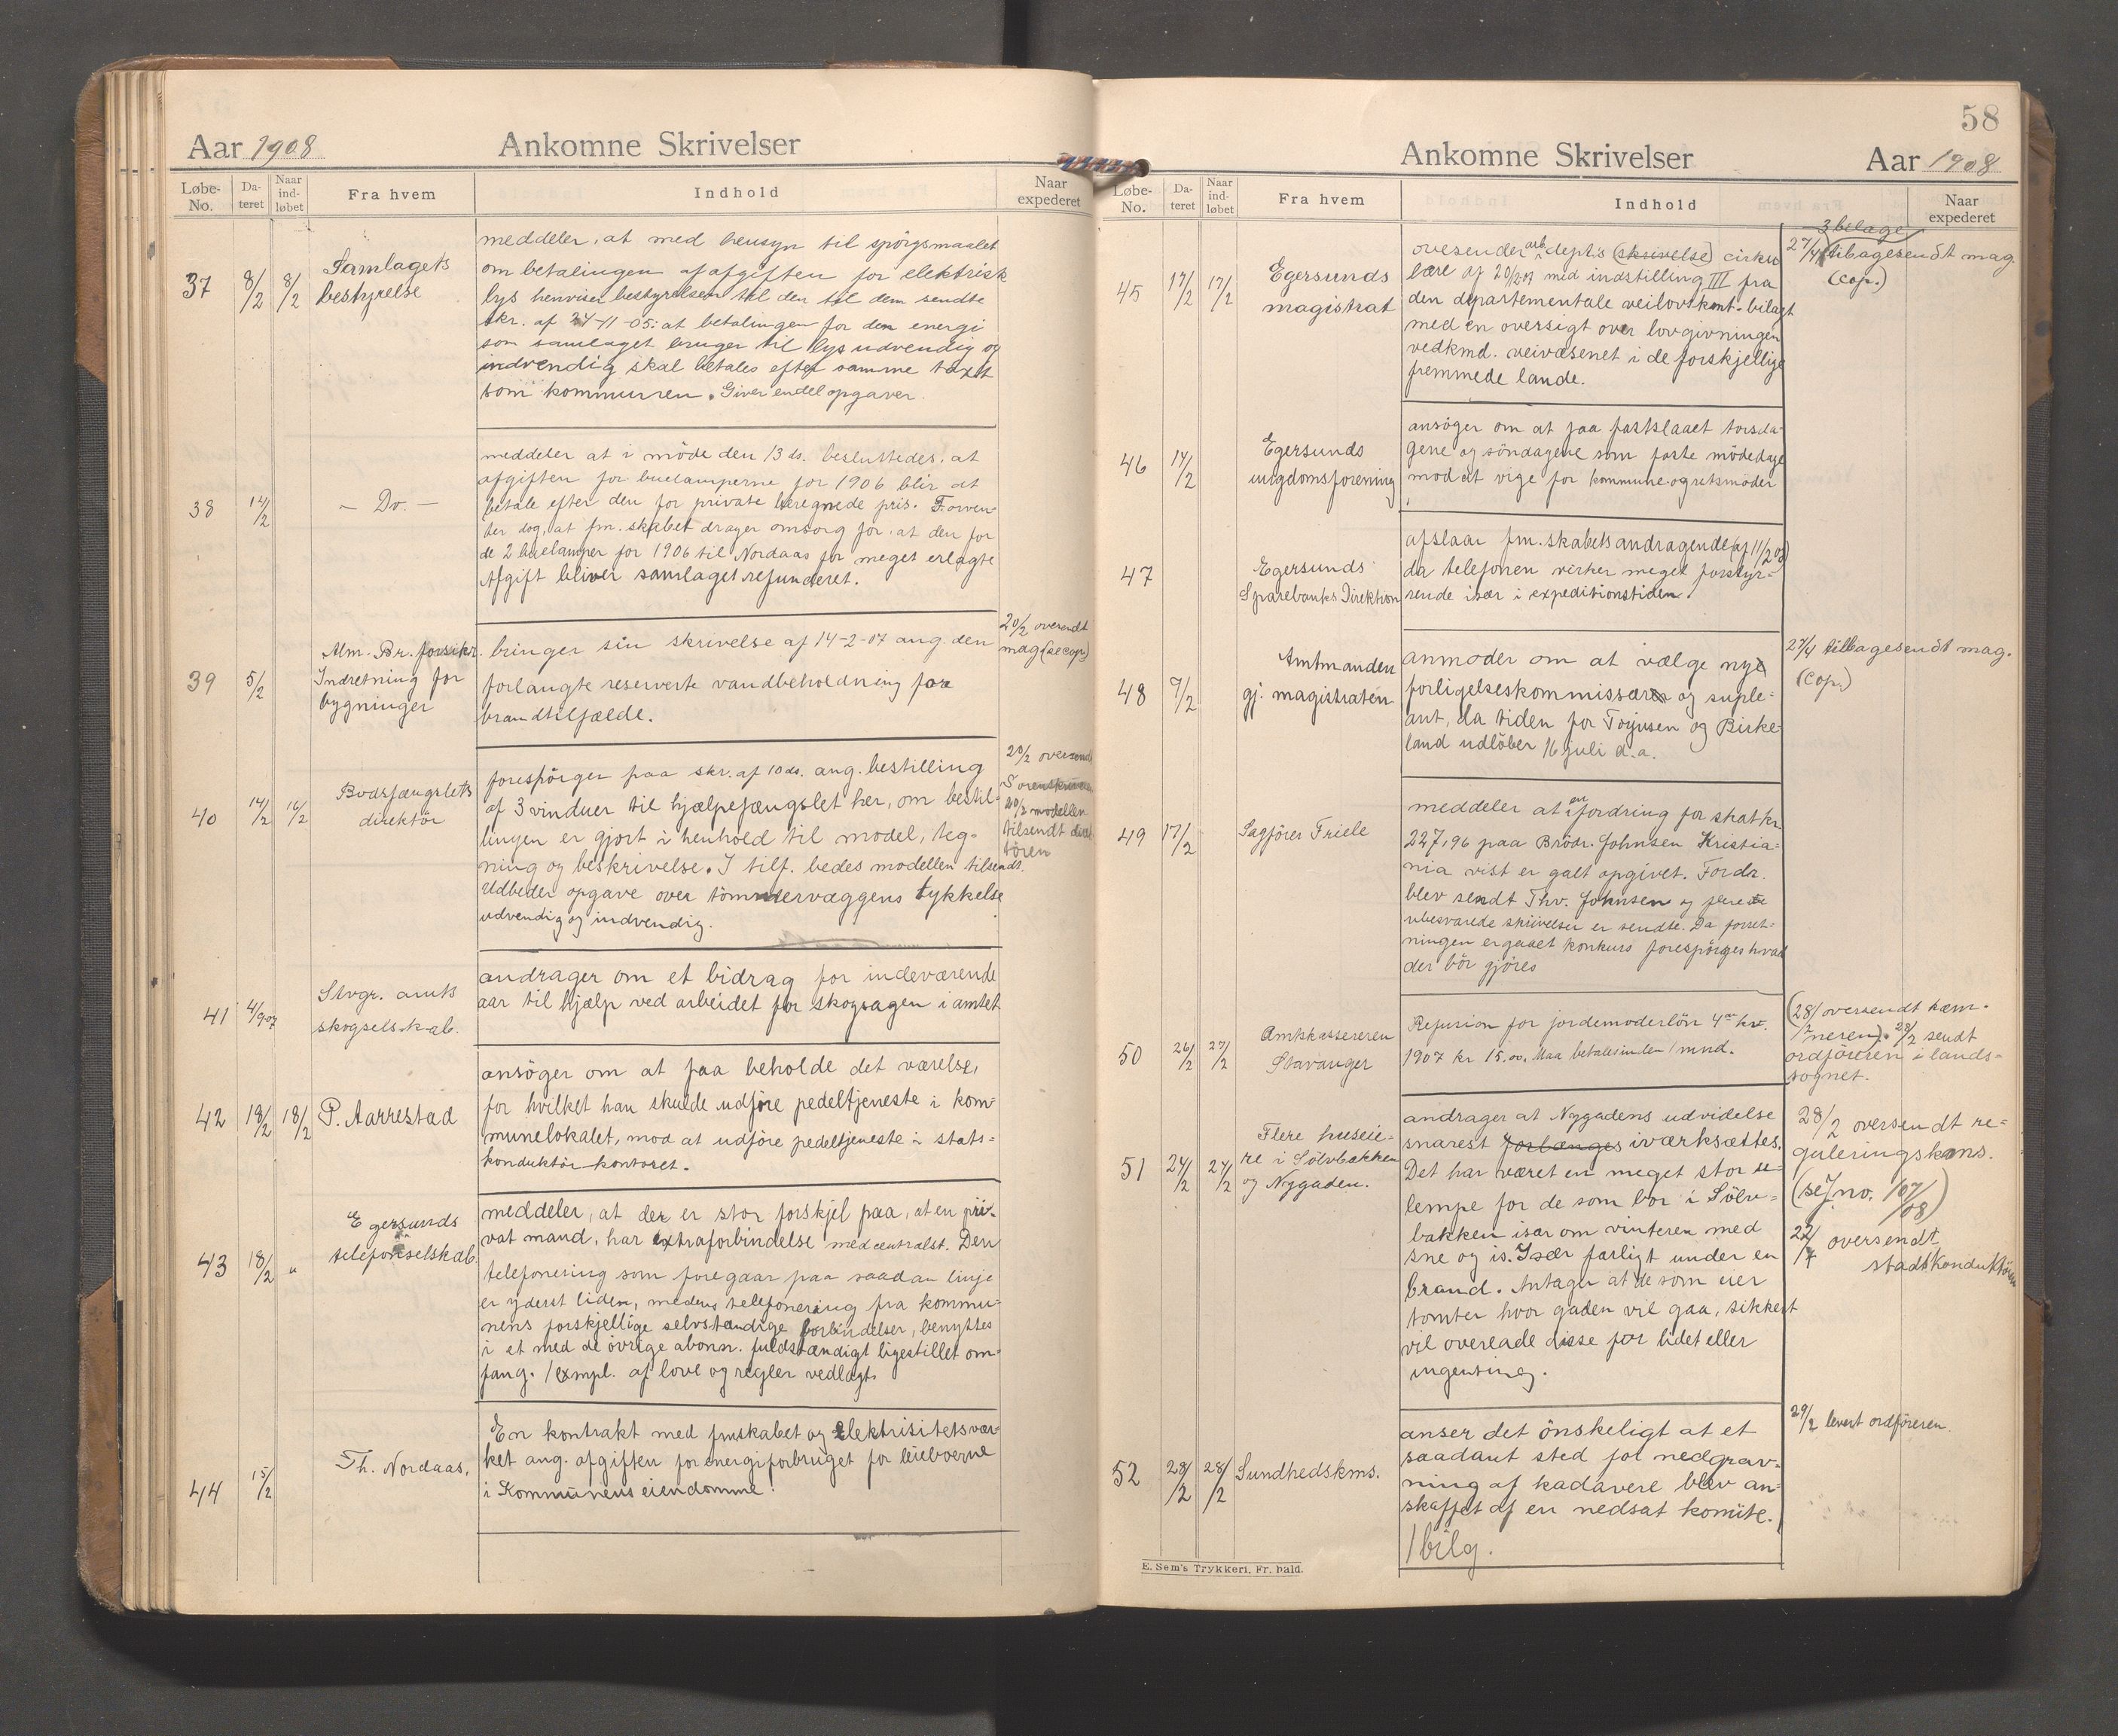 Aar 1908 Ankomne Skrivelser
Løbe-No. Dateret Naar indløbet Fra hvem Indhold Naar expederet
37 8/2 8/2 Samlagets
bestyrelse
meddeler, at med hensyn til spörgsmaalet
om betalingen af afgiften for elektrisk
lys henviser bestyrelsen til den til dem sendte
skr. af 24-11-05: at betalingen for den energi
som samlaget bruger til lys udvendig og
indvendig skal betales efter samme taxt
som kommunen. Giver endel opgaver.
38 14/2 - Do. -
meddeler at i möde den 13 ds. besluttedes, at
afgiften for buelamperne for 1906 blir at
betale efter den for private beregnede pris. Forven
ter dog, at fm.skabet drager omsorg for, at den for
de 2 buelamper for 1906 til Nordaas for meget erlagte
Afgift bliver samlaget refunderet.
39 5/2 Alm. Br. forsikr.
Indretning for
bygninger
bringer sin skrivelse af 14-2-07 ang. den
forlangte reserverte vandbeholdning for
brandtilfælde.
20/2 oversendt
mag (se cop.)
40 14/2 16/2 Bodsfængslets
direktör
forespörger paa skr. af 10 ds. ang. bestilling
af 3 vinduer til hjælpefængslet her, om bestil-
lingen er gjort i henhold til model, teg-
ning og beskrivelse. I tilf. bedes modellen tilsendt.
Udbeder opgave over tömmervæggens tykkelse
udvendig og indvendig.
20/2 oversendt
Sorenskriveren
20/2 modellen
tilsendt direk
tören
41 4/907 Stvgr. amts
skogselskab.
andrager om et bidrag for indeværende
aar til hjælp ved arbeidet for skogsagen i amtet
42 18/2 18/2 P. Aarrestad
ansöger om at faa beholde det værelse,
for hvilket han skulde udføre pedeltjeneste i kom-
munelokalet, mod at udføre pedeltjeneste i stats-
konduktör-kontoret.
43 18/2 " Egersunds
telefonselskab
meddeler, at der er stor forskjel paa, at en pri-
vat mand, har extraforbindelse med centralst. Den
telefonering som foregaar paa saadan linje
er yderst liden, medens telefonering fra kommu-
nens forskjellige selvstændige forbindelser, benyttes
i et med de övrige abonn. fuldstændigt ligestillet om-
fang. 1 exmpl. af love og regler vedlagt.
44 15/2 Th. Nordaas.
En kontrakt med fmskabet og elektrisitetsvær-
ket ang. afgiften for energiforbruget for leieboerne
i Kommunens eiendomme.
58
Ankomne Skrivelser Aar 1908
Løbe-No. Dateret Naar indløbet Fra hvem Indhold Naar expederet
45 17/2 17/2 Egersunds
magistrat
oversender arb. dept.s (skrivelse) cirku
lære af 20/12 07 med indstilling III fra
den departementale veilovskomt. bilagt
med en oversigt over lovgivningen
vedkmd. veivæsenet i de forskjellige
fremmede lande.
3 bilage
27/4 tilbagesendt mag.
(cop.)
46 14/2 Egersunds
ungdomsforening
ansöger om at faa fastslaaet torsda-
gene og söndagene som faste mödedage
mod at vige for kommune- og retsmöder
47 Egersunds
Sparebanks Direktion
afslaar fm.skabets andragende (af 11/2 08)
da telefonen virker meget forstyr-
rende især i expeditionstiden.
48 7/2 Amtmanden
gj. magistraten
anmoder om at vælge nye
forligelseskommissær og suple-
ant, da tiden for Torjusen og Birke-
land udlöber 16 juli d.a.
27/4 tilbagesendt mag.
(cop.)
49 17/2 Sagförer Friele
meddeler at en fordring for skat kr.
227,96 paa Brödr. Johnsen Kristia-
nia vist er galt opgivet. Fordr.
blev sendt Thv. Johnsen og flere
ubesvarede skrivelser er sendte. Da forret-
ningen er gaaet konkurs forespörges hvad
der bör gjöres
50 26/2 27/2 Amtskassereren
Stavanger
Refusion for jordemoderlön 4de kv.
1907 kr 15.00. Maa betales inden 1 mnd.
(28/2 oversendt kæm-
neren). 28/2 sendt
ordföreren i lands-
sognet.
51 24/2 24/2 Flere huseie-
re i Sölvbakken
og Nygaden.
andrager at Nygadens udvidelse
snarest forlænges iværksættes.
Det har været en meget stor u-
lempe for de som bor i Sölv-
bakken især om vinteren med
sne og is. Især farligt under en
brand. Antager at de som eier
tomter hvor gaden vil gaa, sikkert
vil overlade disse for lidet eller
ingenting.
28/2 oversendt re-
guleringskoms.
(se J.no. 107/08)
22/4 oversendt
stadskonduktören
52 28/2 28/2 Sundhedskms.
anser det önskeligt at et
saadant sted for nedgrav-
ning af kadavere blev an-
skaffet af en nedsat komite.
1 bilg.
29/2 levert ordföreren.
E. Sem's Trykkeri. Fr. hald.